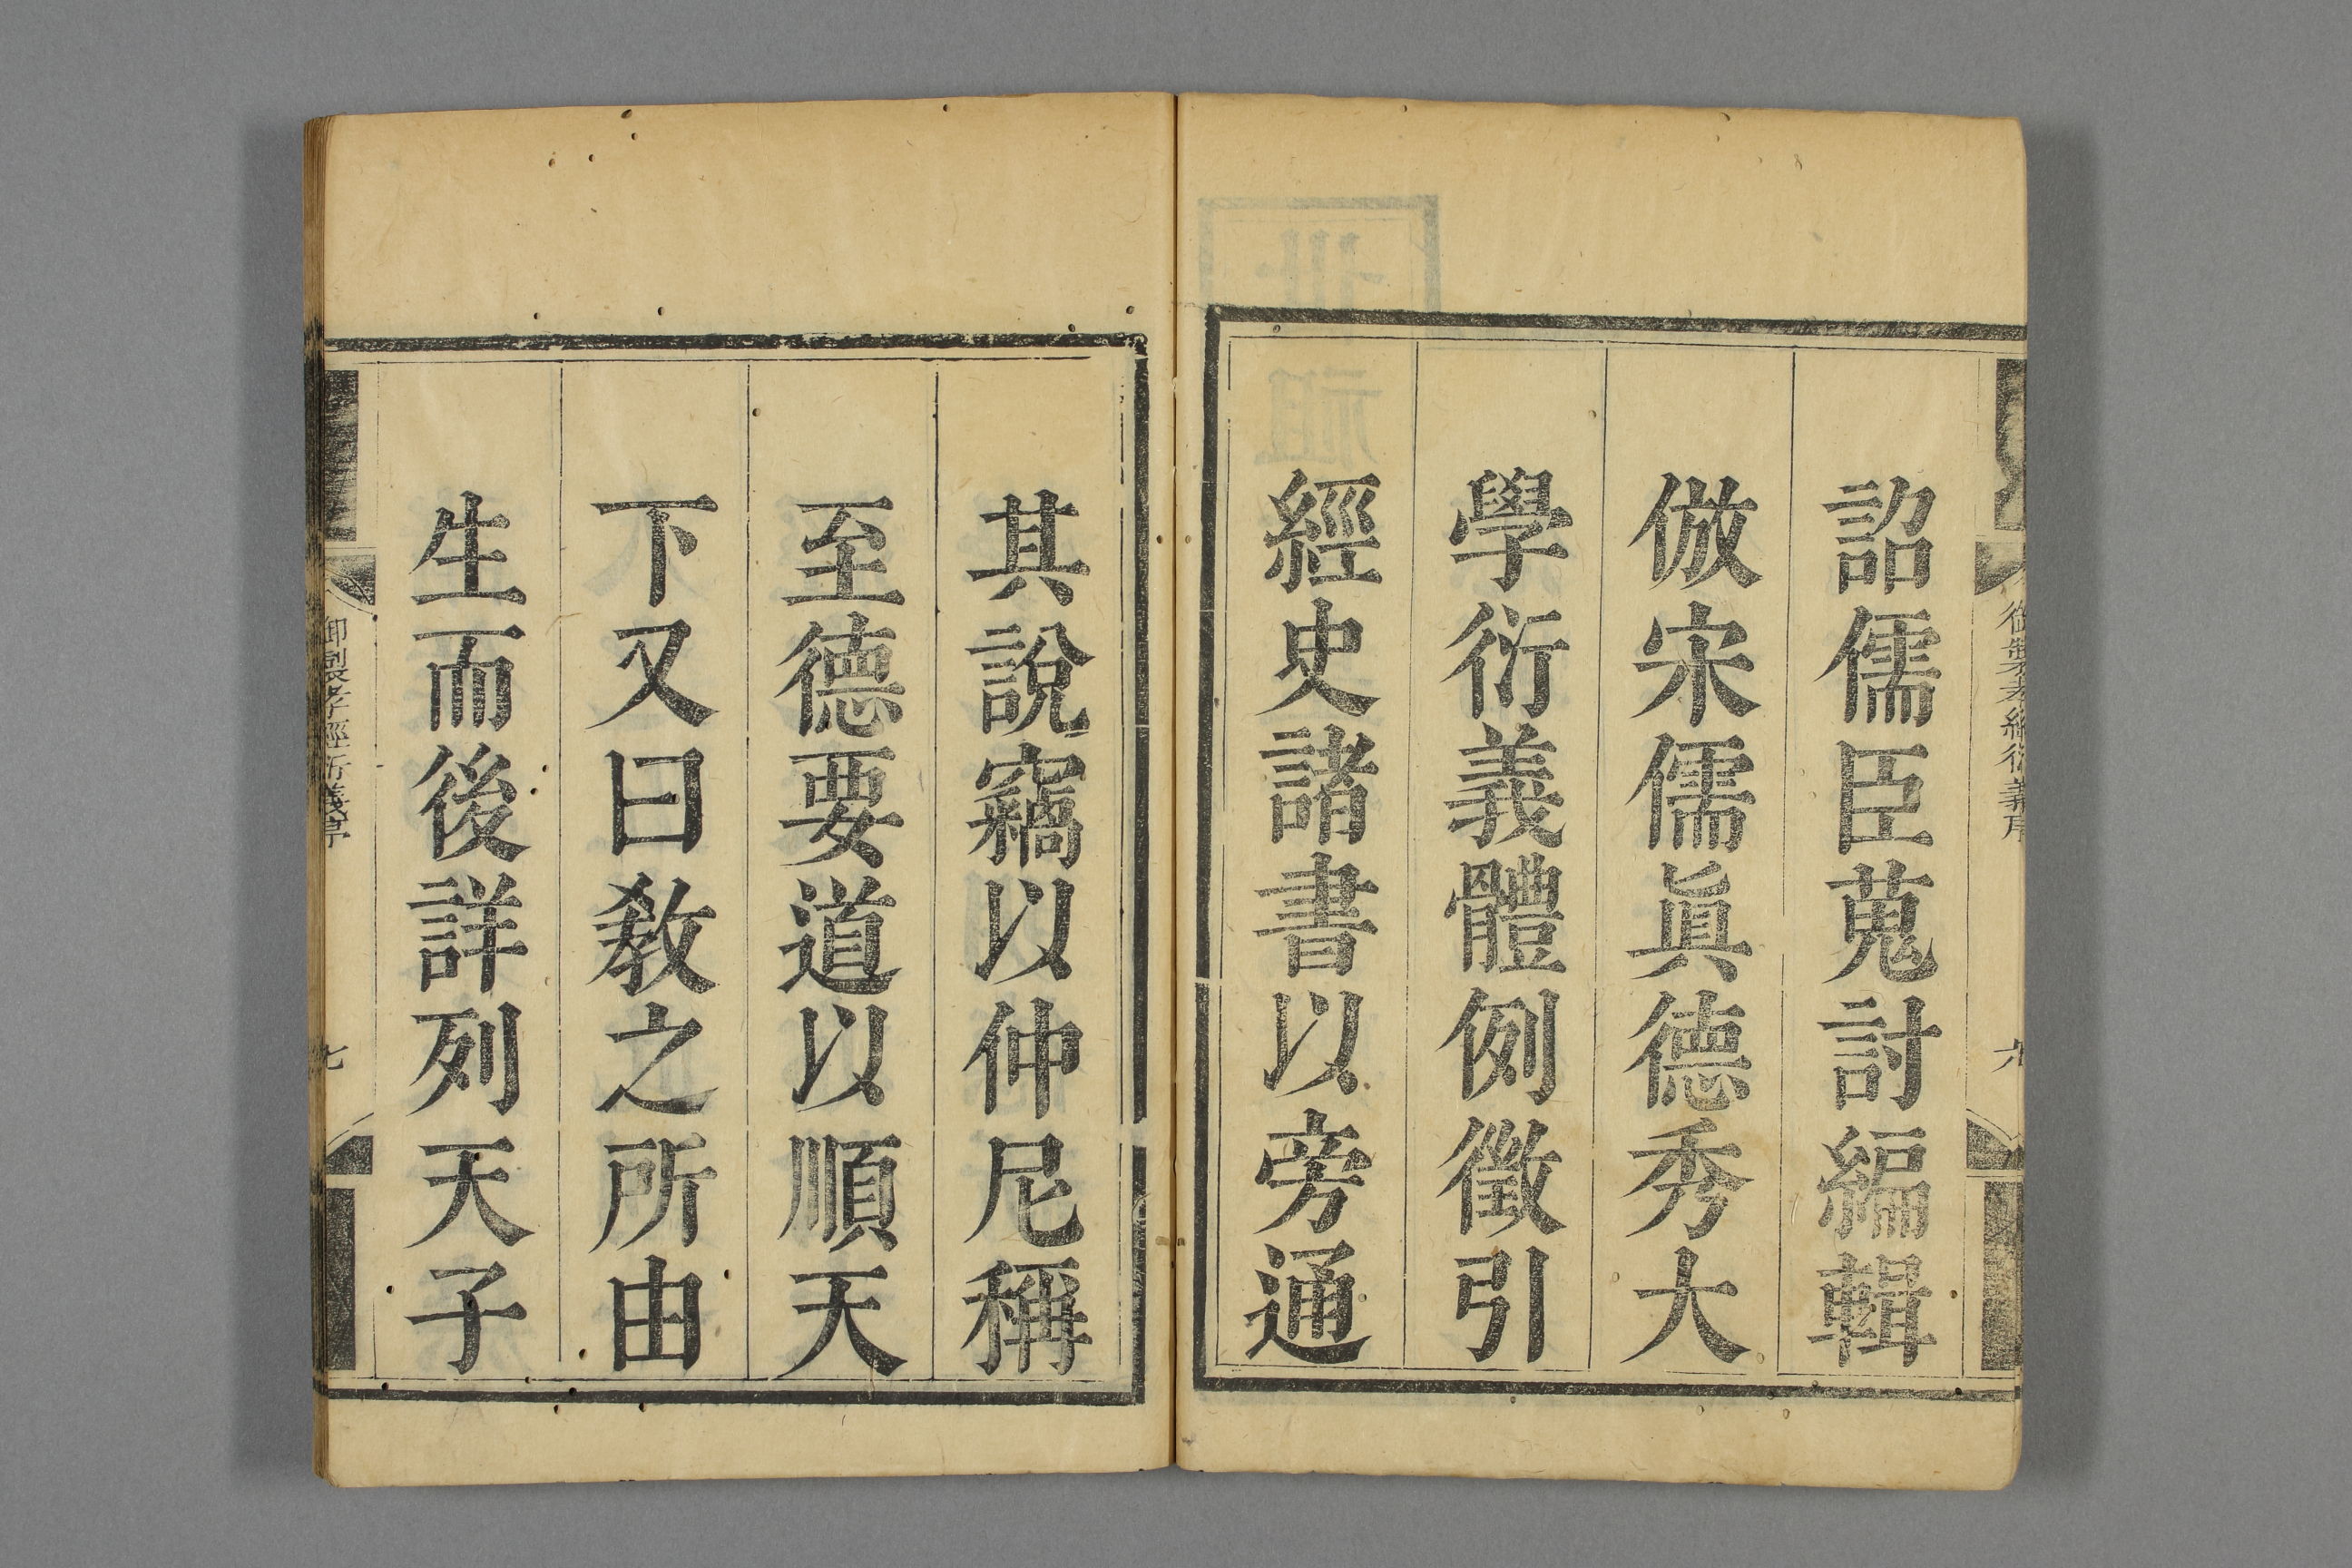 詔儒臣蒐討編輯
倣宋儒眞德秀大
學衍義體例徵引
經史諸書以旁通
其說竊以仲尼稱
至德要道以順天
下又曰敎之所由
生而後詳列天子
御製孝經衍義序
六
御製孝經衍義序
七